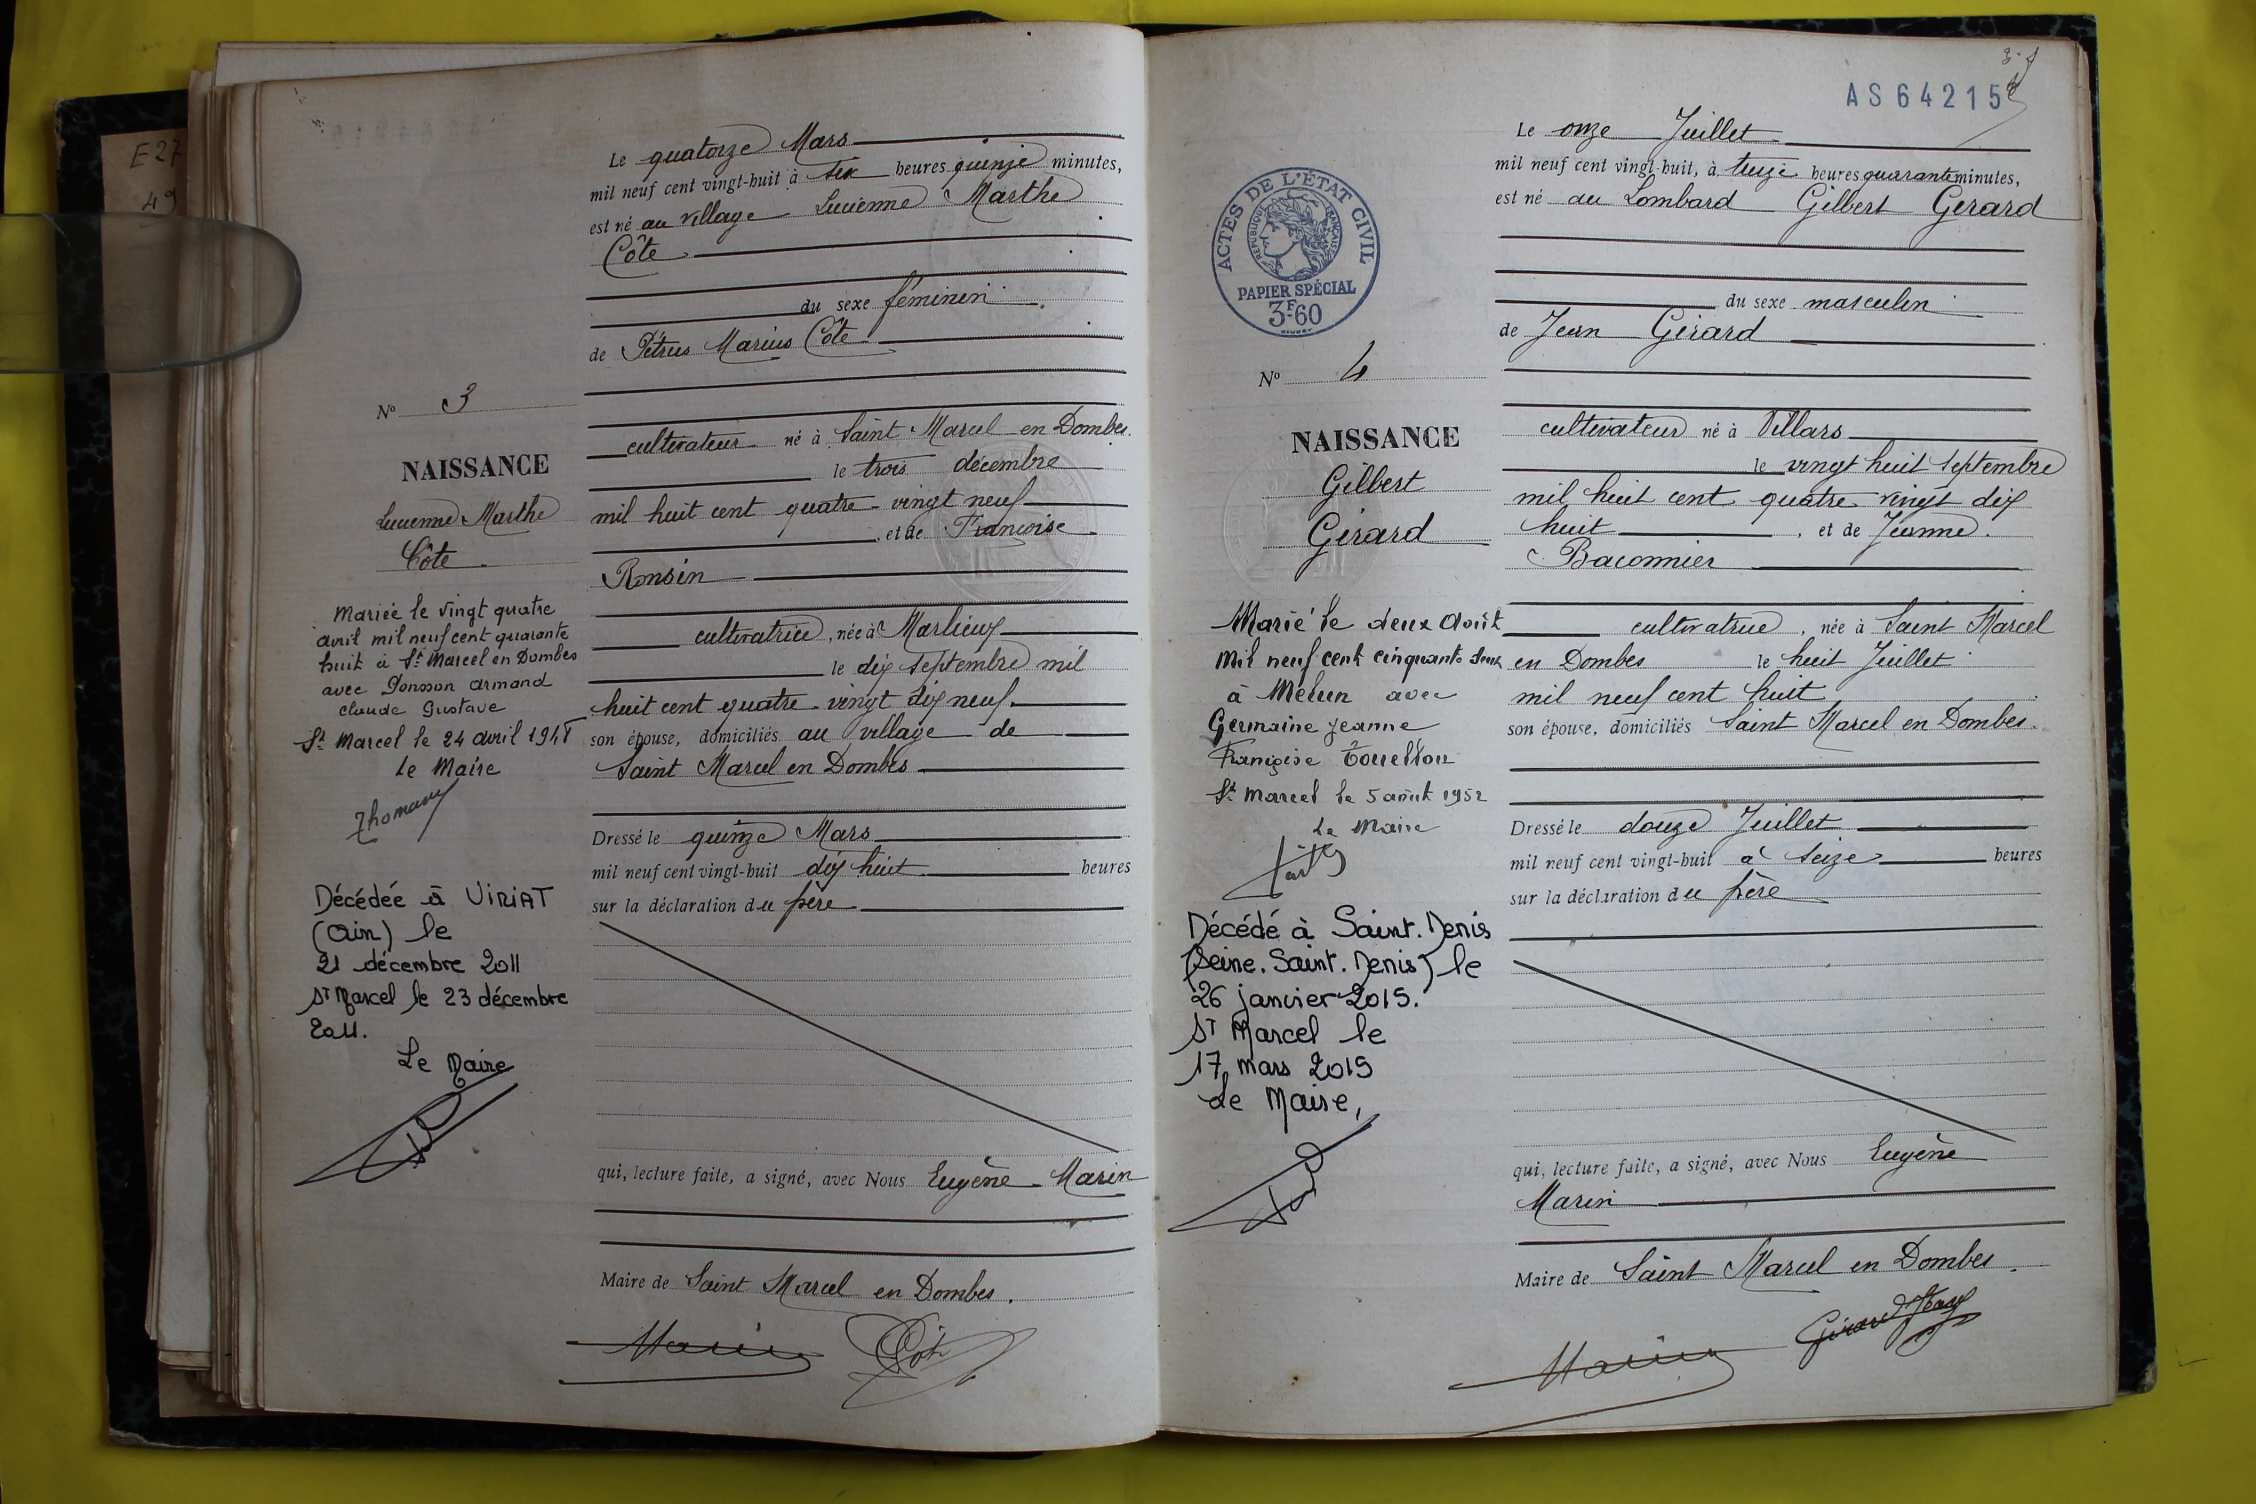 E27
49
Le quatorze Mars
mil neuf cent vingt-huit à six heures quinze minutes,
est né au village Lucienne Marthe
Côte
du sexe féminin.
de Pétrus Marius Côte
cultivateur né à Saint Marcel en Dombes.
le trois décembre
mil huit cent quatre-vingt neuf
, et de Françoise
Ronsin
cultivatrice, née à Marlieux
le dix septembre mil
huit cent quatre-vingt dix neuf.
son épouse, domiciliés au village de
Saint Marcel en Dombes
Dressé le quinze Mars
mil neuf cent vingt-huit dix huit heures
sur la déclaration du père
qui, lecture faite, a signé, avec Nous Eugène Marin
Maire de Saint Marcel en Dombes.
Marin Côte
No 3
NAISSANCE
Lucienne Marthe
Côte
Mariée le vingt quatre
avril mil neuf cent quarante
huit à St Marcel en Dombes
avec Ponsson Armand
Claude Gustave
St Marcel le 24 avril 1948
Le Maire
Thomas
Décédée à VIRIAT
(Ain) le
21 décembre 2011
St Marcel le 23 décembre
2011.
Le Maire
AS64215
Le onze Juillet
mil neuf cent vingt-huit, à treize heures quarante minutes,
est né au Lombard Gilbert Gérard
du sexe masculin
de Jean Gérard
cultivateur né à Villars
le vingt huit septembre
mil huit cent quatre-vingt dix
huit , et de Jeanne
Baconnier
cultivatrice, née à Saint Marcel
en Dombes le huit Juillet
mil neuf cent huit
son épouse, domiciliés Saint Marcel en Dombes.
Dressé le douze Juillet
mil neuf cent vingt-huit à seize heures
sur la déclaration du père
qui, lecture faite, a signé, avec Nous Eugène
Marin
Maire de Saint Marcel en Dombes.
Marin Gérard Jean
ACTES DE L'ÉTAT CIVIL
RÉPUBLIQUE FRANÇAISE
PAPIER SPÉCIAL
3F60
No 4
NAISSANCE
Gilbert
Gérard
Marié le deux Août
Mil neuf cent cinquante deux
à Melun avec
Germaine Jeanne
Françoise
St Marcel le 5 août 1952
Le Maire
Décédé à Saint-Denis
(Seine-Saint-Denis) le
26 janvier 2015.
St Marcel le
17 mars 2015
Le Maire,